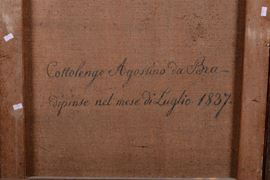 Cottolengo Agostino da Bra-
dipinse nel mese di Luglio 1837.